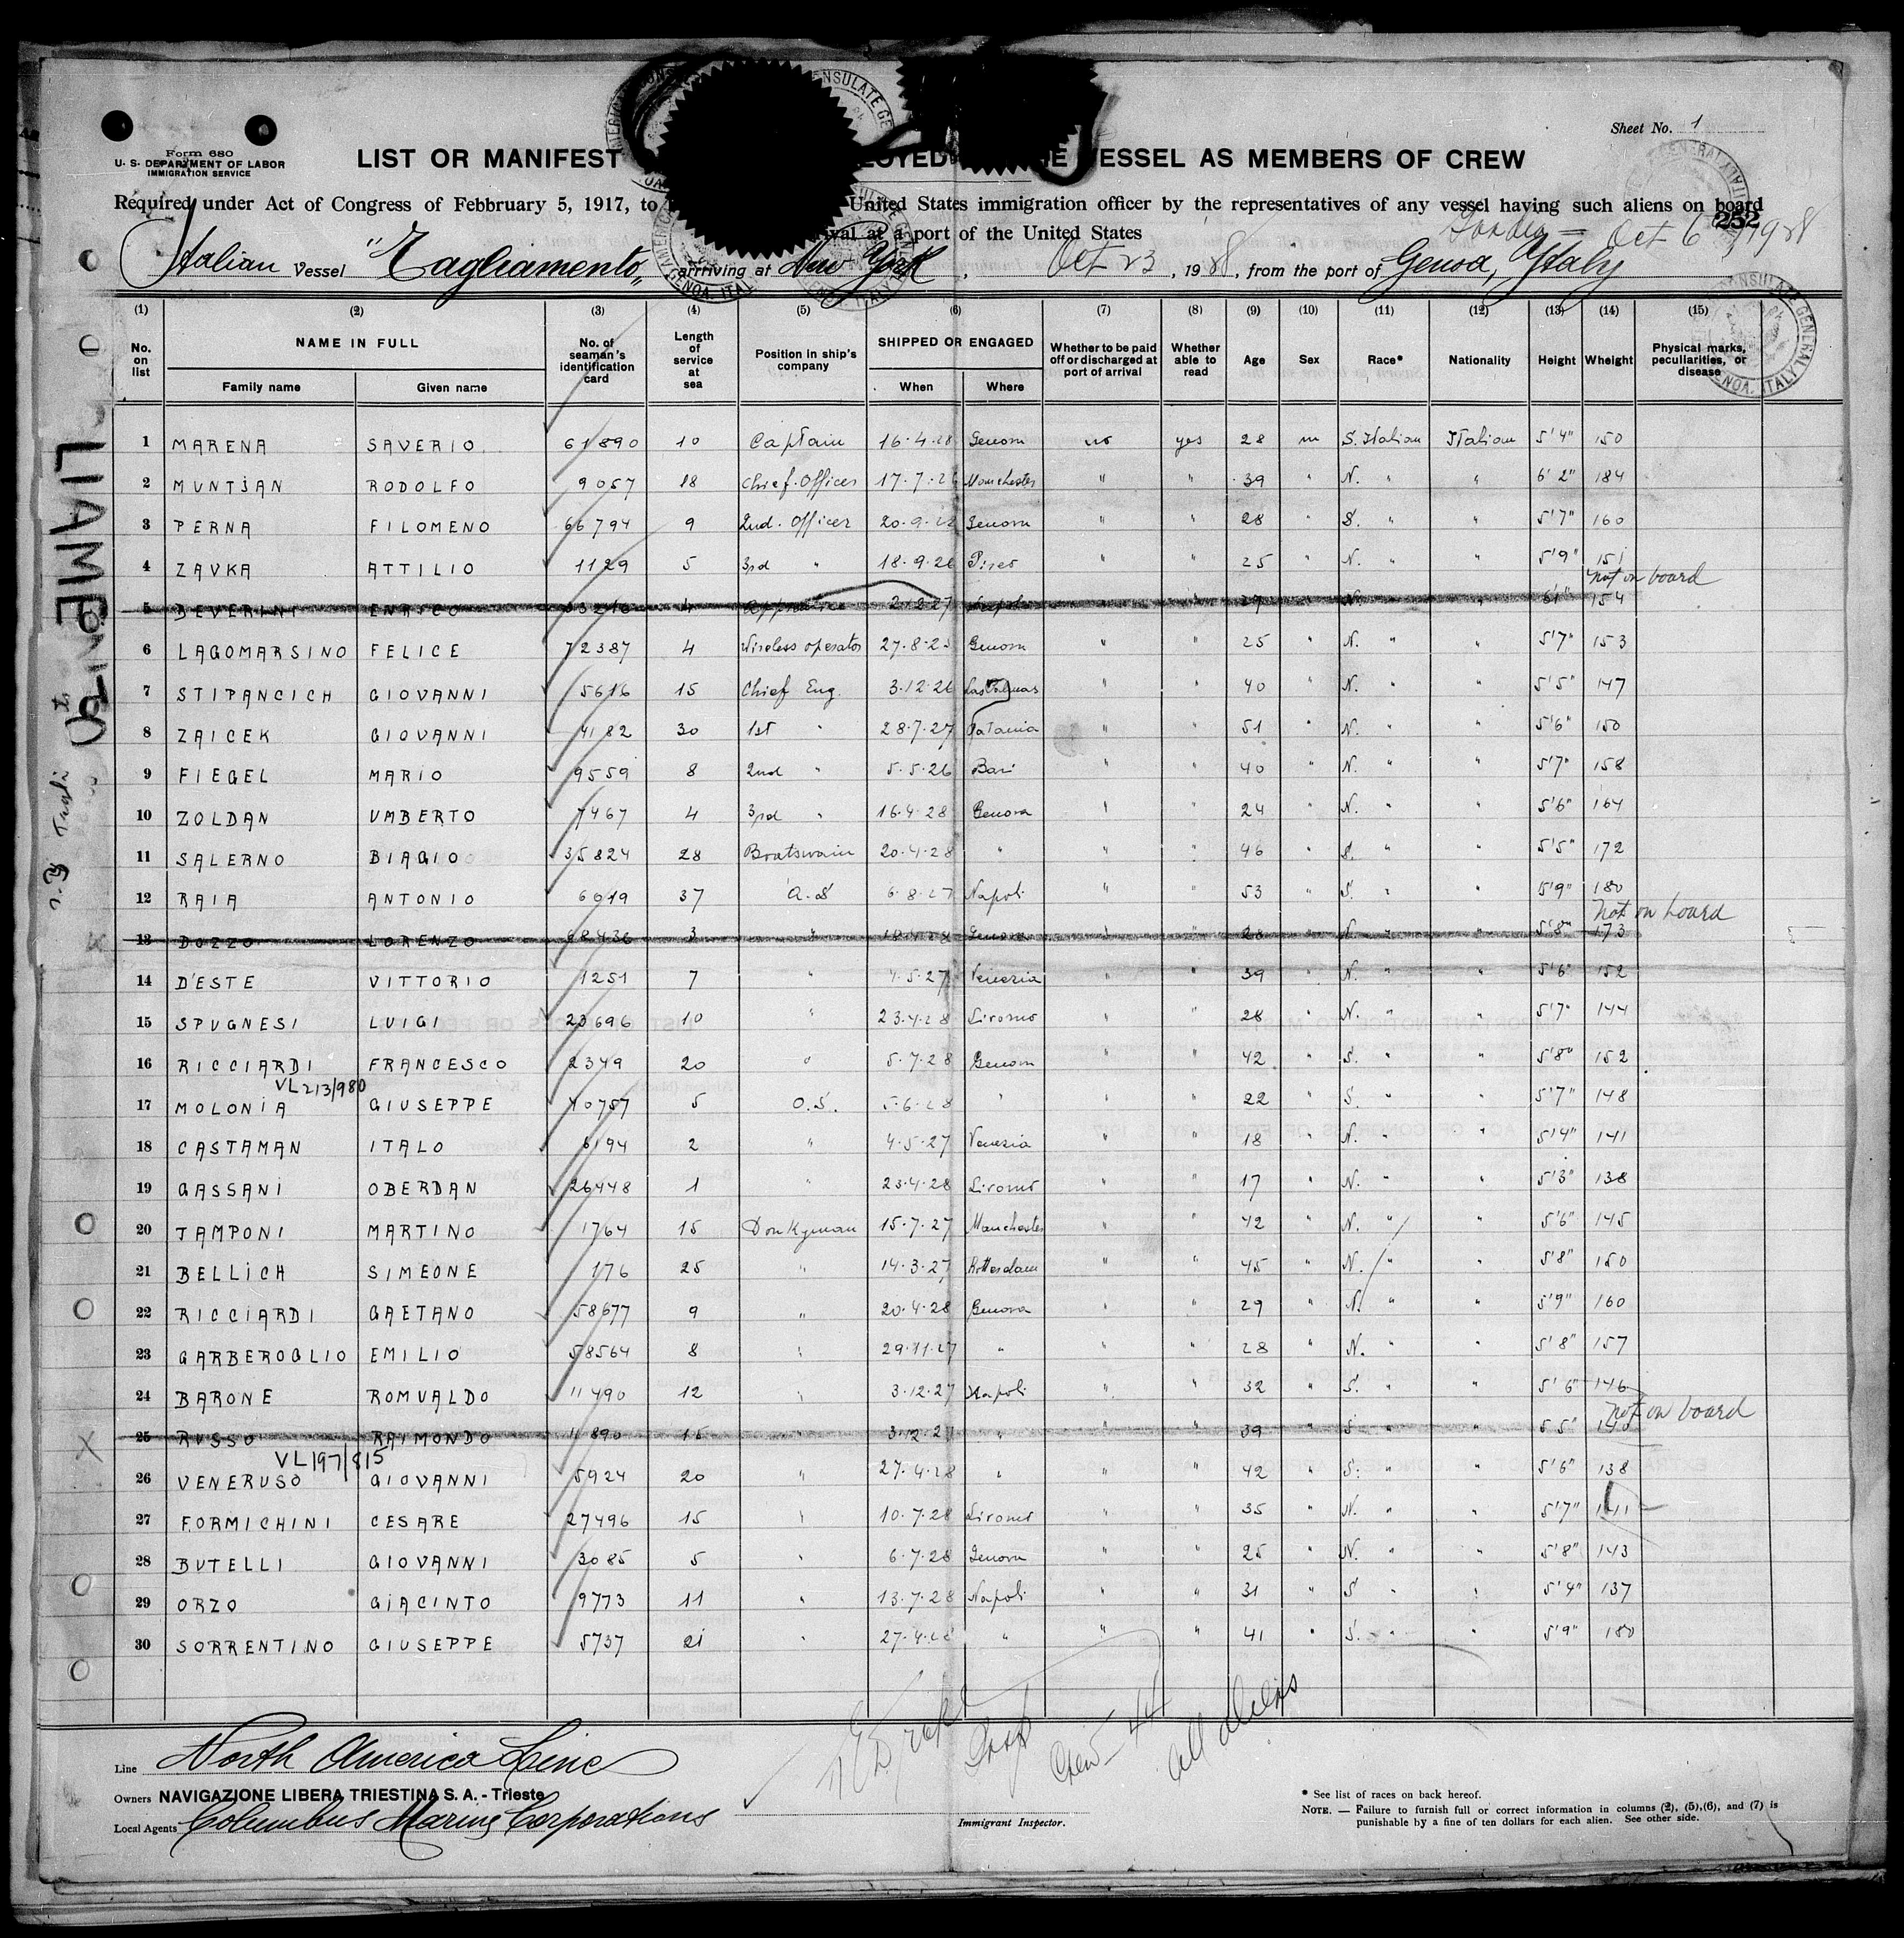 Sheet No. 1
Form 680
U. S. DEPARTMENT OF LABOR
IMMIGRATION SERVICE
LIST OR MANIFEST VESSEL AS MEMBERS OF CREW
Required under Act of Congress of Febbruary 5, 1917, to United States immigration officer by the representatives of any vessel having such aliens on board
at a port of the United States
252
Oct 6 1928
Italian Vessel "Tagliamento" arriving at New York, Oct 23, 1928, from the port of Genoa, Italy
(1) (2) (3) (4) (5) (6) (7) (8) (9) (10) (11) (12) (13) (14) (15)
No. on list NAME IN FULL Family name Given name No. of seaman's identification card Length of service at sea Position in ship's company SHIPPED OR ENGAGED When Where Whether to be paid off or discharged at port of arrival Whether able to read Age Sex Race* Nationality Height Wheight Physical marks, peculiarities, or disease
1 MARENA SAVERIO 61890 10 Captain 16.4.28 Genova no yes 28 m S. Italian Italian 5'4" 150
2 MUNTJAN RODOLFO 9057 18 Chief. Officer 17.7.26 Manchester " " 39 " N. " " 6'2" 184
3 PERNA FILOMENO 66794 9 2nd. Officer 20.9. Genova " " 28 " S. " " 5'7" 160
4 ZAVKA ATTILIO 1129 5 3rd " 18.9.26 " " 25 " N. " " 5'9" 151
not on board
5 BEVERINI ENRICO 4 2.2.27 " " 29 " N. " " 6'1" 154
6 LAGOMARSINO FELICE 72387 4 Wireless operator 27.8.25 Genova " " 25 " N. " " 5'7" 153
7 STIPANCICH GIOVANNI 5616 15 Chief Eng. 3.12.26 Las Palmas " " 40 " N. " " 5'5" 147
8 ZAICEK GIOVANNI 4182 30 1st " 28.7.27 Catania " " 51 " N. " " 5'6" 150
9 FIEGEL MARIO 9559 8 2nd " 5.5.26 Bari " " 40 " N. " " 5'7" 158
10 ZOLDAN UMBERTO 7467 4 3rd " 16.4.28 Genova " " 24 " N. " " 5'6" 164
11 SALERNO BIAGIO 35824 28 Boatswain 20.4.28 " " " 46 " S. " " 5'5" 172
12 RAIA ANTONIO 6619 37 A.S 6.8.27 Napoli " " 53 " S. " " 5'9" 180
not on board
13 DOZZO LORENZO 68436 3 " 18.4.28 Genova " " 20 " N. " " 5'8" 173
14 D'ESTE VITTORIO 1251 7 " 4.5.27 Venezia " " 39 " N. " " 5'6" 152
15 SPUGNESI LUIGI 23696 10 " 23.4.28 Livorno " " 28 " N. " " 5'7" 144
16 RICCIARDI FRANCESCO 2349 20 " 5.7.28 Genova " " 42 " S. " " 5'8" 152
VL 213/980
17 MOLONIA GIUSEPPE 40757 5 O.S. 5.6.28 " " " 22 " S. " " 5'7" 148
18 CASTAMAN ITALO 6194 2 " 4.5.27 Venezia " " 18 " N. " " 5'4" 141
19 GASSANI OBERDAN 26448 1 " 23.4.28 Livorno " " 17 " N. " " 5'3" 138
20 TAMPONI MARTINO 1764 15 Donkyman 15.7.27 Manchester " " 42 " N. " " 5'6" 145
21 BELLICH SIMEONE 176 25 " 14.3.27 Rotterdam " " 45 " N. " " 5'8" 150
22 RICCIARDI GAETANO 58677 9 " 20.4.28 Genova " " 29 " N. " " 5'9" 160
23 GARBEROGLIO EMILIO 58564 8 " 29.11.27 " " " 28 " N. " " 5'8" 157
24 BARONE ROMUALDO 11490 12 " 3.12.27 Napoli " " 32 " S. " " 5'6" 146
not on board
25 RUSSO RAIMONDO 11890 16 " 3.12.27 " " " 39 " S " " 5'5" 140
VL 197/815
26 VENERUSO GIOVANNI 5924 20 " 27.4.28 " " " 42 " S. " " 5'6" 138
27 FORMICHINI CESARE 27496 15 " 10.7.28 Livorno " " 35 " N. " " 5'7" 141
28 BUTELLI GIOVANNI 3085 5 " 6.7.28 Genova " " 25 " N. " " 5'8" 143
29 ORZO GIACINTO 9773 11 " 13.7.28 Napoli " " 31 " S " " 5'4" 137
30 SORRENTINO GIUSEPPE 5737 21 " 27.4.28 " " " 41 " S. " " 5'9" 180
Crew - 44
all aliens
Line North America Line
Owners NAVIGAZIONE LIBERA TRIESTINA S. A. - Trieste
Local Agents Columbus Marine Corporations
Immigrant Inspector.
* See list of races on back hereof.
NOTE. — Failure to furnish full or correct information in columns (2), (5),(6), and (7) is
punishable by a fine of ten dollars for each alien. See other side.